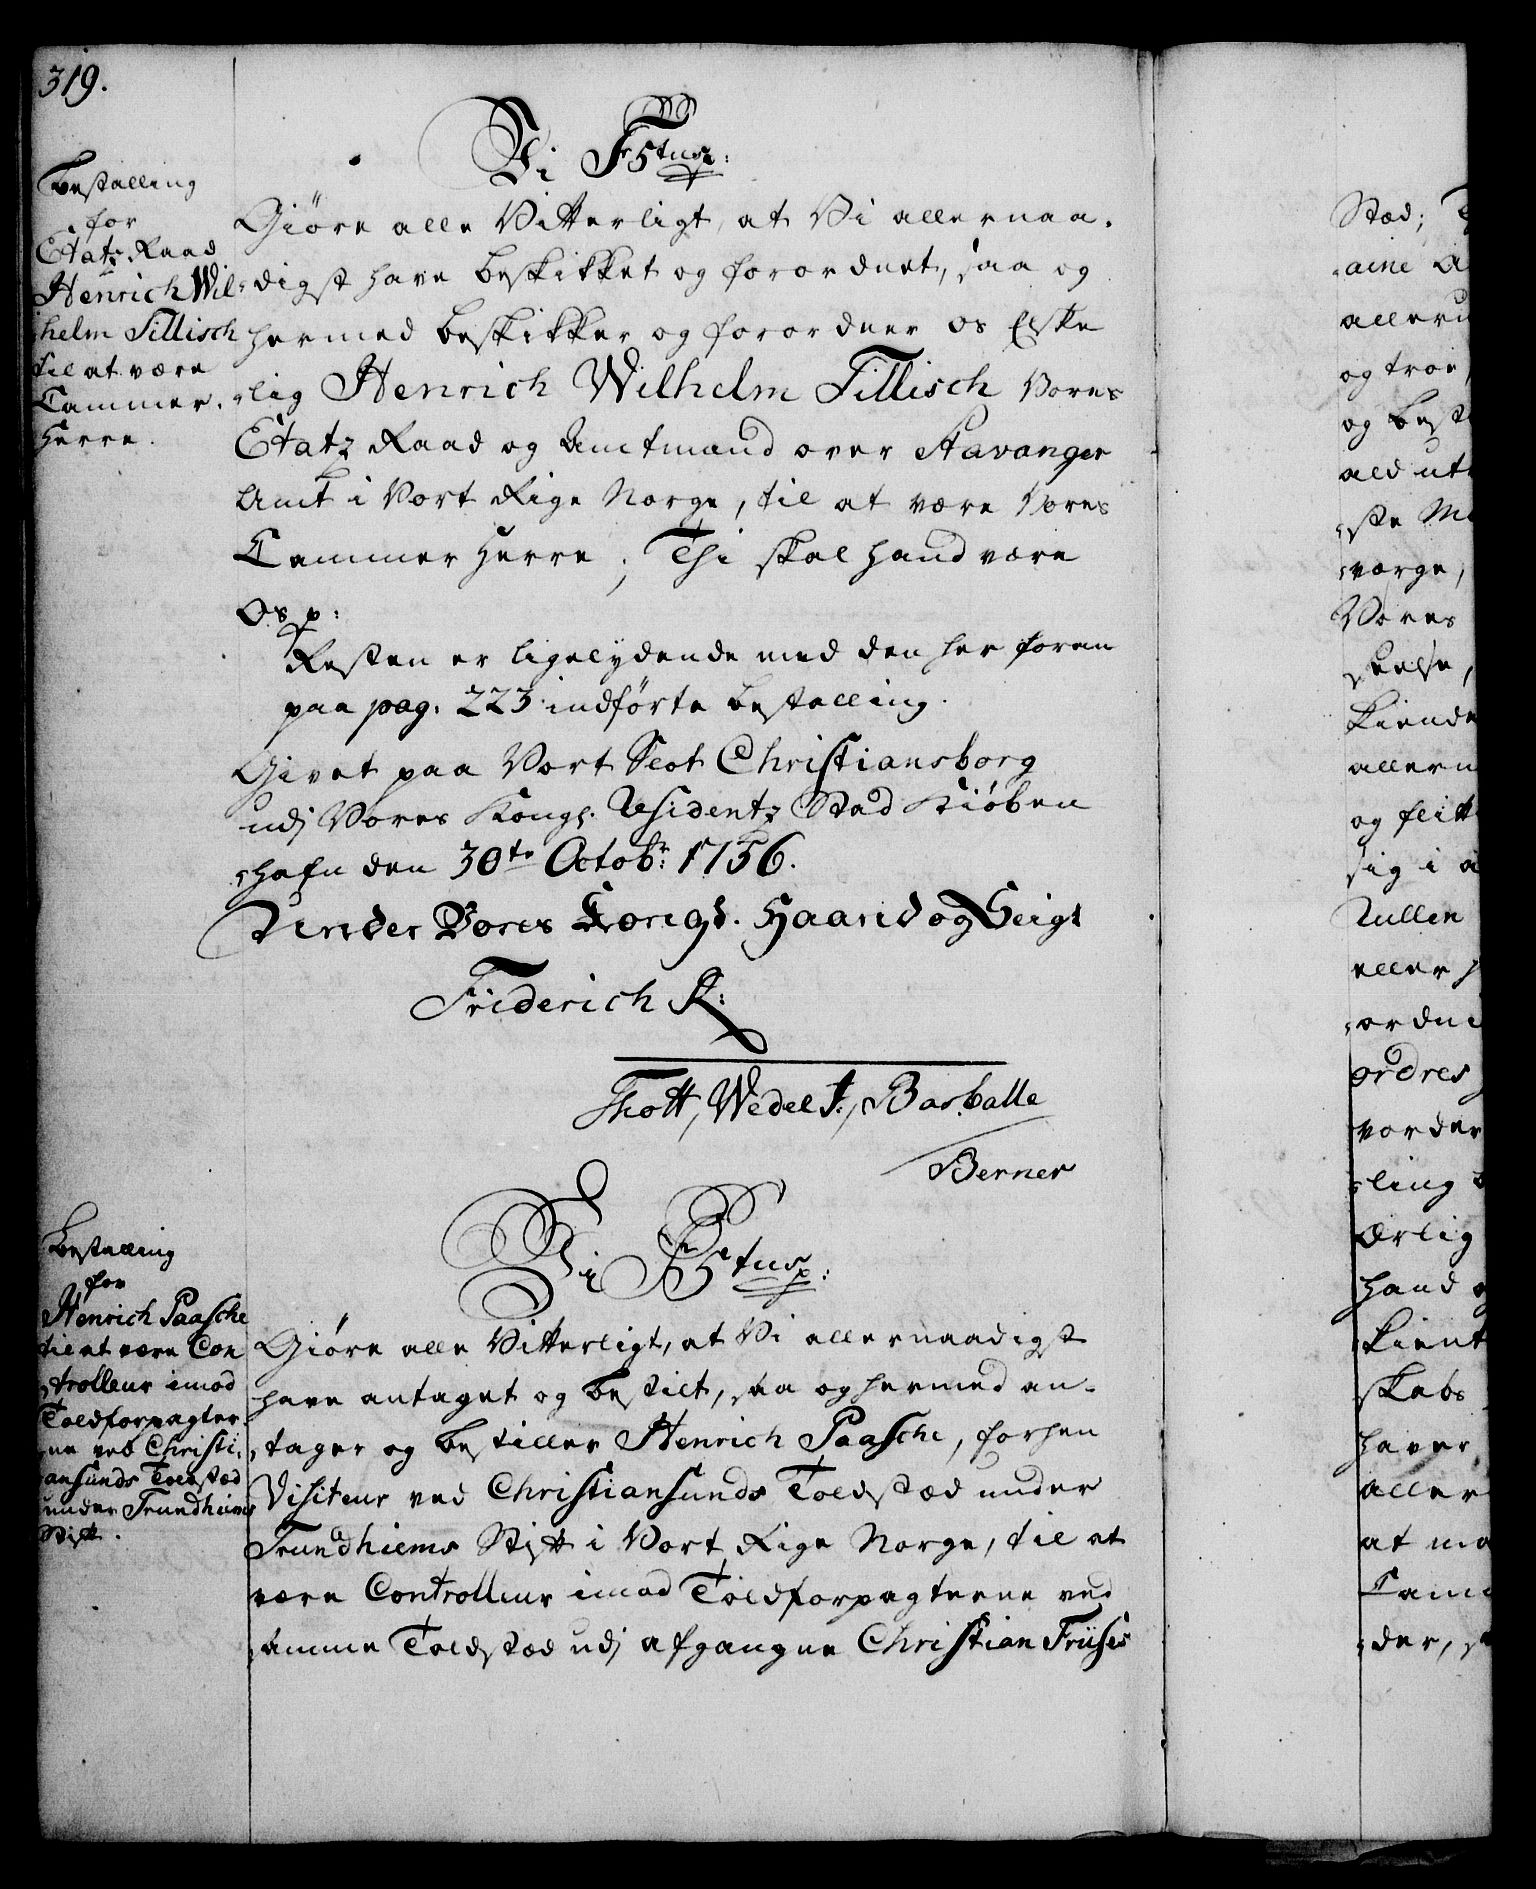 319.
Bestalling
for
Etatz Raad
Henrich Wil-
helm Tillisch
til at være
Cammer-
Herre.
Vi Fr 5tus p:
Giöre alle Vitterligt, at Vi allernaa-
digst have beskikket og forordnet, saa og
hermed beskikker og forordner os Elske
-lig Henrich Wilhelm Tillisch Vores
Etatz Raad og Amtmand over Stavanger
Amt i Vort Rige Norge, til at være Vores
Cammer Herre; Thi skal hand være
Os p:
Resten er ligelydende med den her foran
paa pag. 223 indförte bestalling.
Givet paa Vort Slot Christiansborg
udj Vores Kongl. Residentz Stad Kiöben
-hafn den 30te Octobr: 1756.
Under Vores Kongl. Haand og Seigl
Friderich R:
Thott, Wedel F:, Barballe
Berner
Bestalling
for
Henrich Paasche
til at være Con
-trolleur imod
Toldforpagter-
-ne ved Christi-
ansunds Toldstæd
under Trundhiems
Stift.
Vi Fr 5tus p:
Giöre alle Vitterligt, at Vi allernaadigst
have antaget og bestilt, saa og hermed an-
-tager og bestiller Henrich Paasche, forhen
Visiteur ved Christiansunds Toldstæd under
Trundhiems Stift i Vort Rige Norge, til at
være Controlleur imod Toldforpagterne ved
samme Toldstæd udj afgangne Christian Friises
Stæd;
alleru
og troe,
og best
ald
-ste
værge,
Vores
-seelse,
kiende
allern
og flitt
sig i
Rullen
eller
-ordni
ordres
vorder
-ling
Ærlig
hand
kient
skabs
haver,
aller
at
Cam
-der,